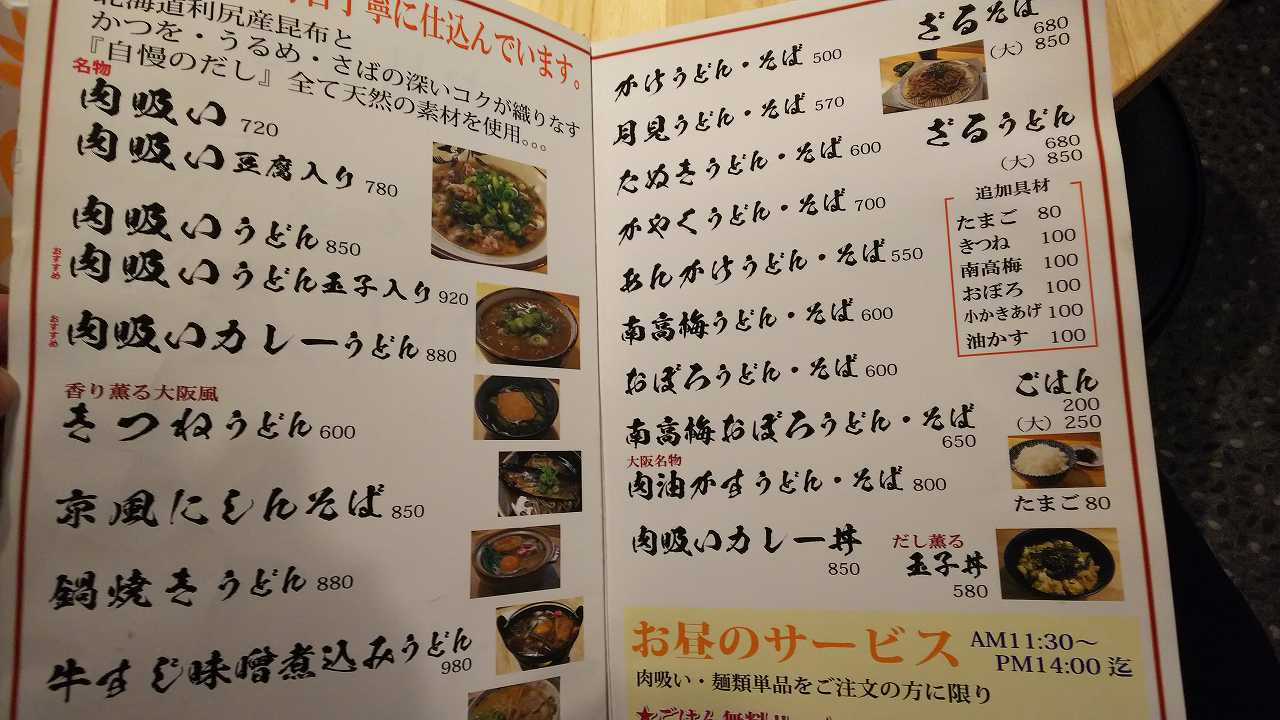 丁寧に仕込んでいます。
北海道利尻産昆布と
かつを・うるめ・さばの深いコクが織りなす
『自慢のだし』全て天然の素材を使用。。。
名物
肉吸い 720
肉吸い豆腐入り 780
肉吸いうどん 850
おすすめ
肉吸いうどん玉子入り 920
おすすめ
肉吸いカレーうどん 880
香り薫る大阪風
きつねうどん 600
京風にしんそば 850
鍋焼きうどん 880
牛すじ味噌煮込みうどん
980
かけうどん・そば 500
月見うどん・そば 570
たぬきうどん・そば 600
かやくうどん・そば 700
あんかけうどん・そば 550
南高梅うどん・そば 600
おぼろうどん・そば 600
南高梅おぼろうどん・そば
650
大阪名物
肉油かすうどん・そば 800
肉吸いカレー丼
850
ざるそば
680
(大) 850
ざるうどん
680
(大) 850
追加具材
たまご 80
きつね 100
南高梅 100
おぼろ 100
小かきあげ 100
油かす 100
ごはん
200
(大) 250
たまご 80
だし薫る
玉子丼
580
お昼のサービス AM11:30～
PM14:00 迄
肉吸い・麺類単品をご注文の方に限り
★ごはん無料!!